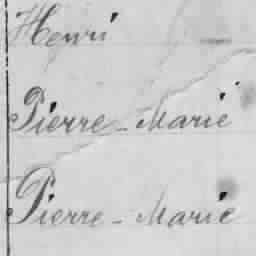 Henri
Pierre-Marie
Pierre-Marie